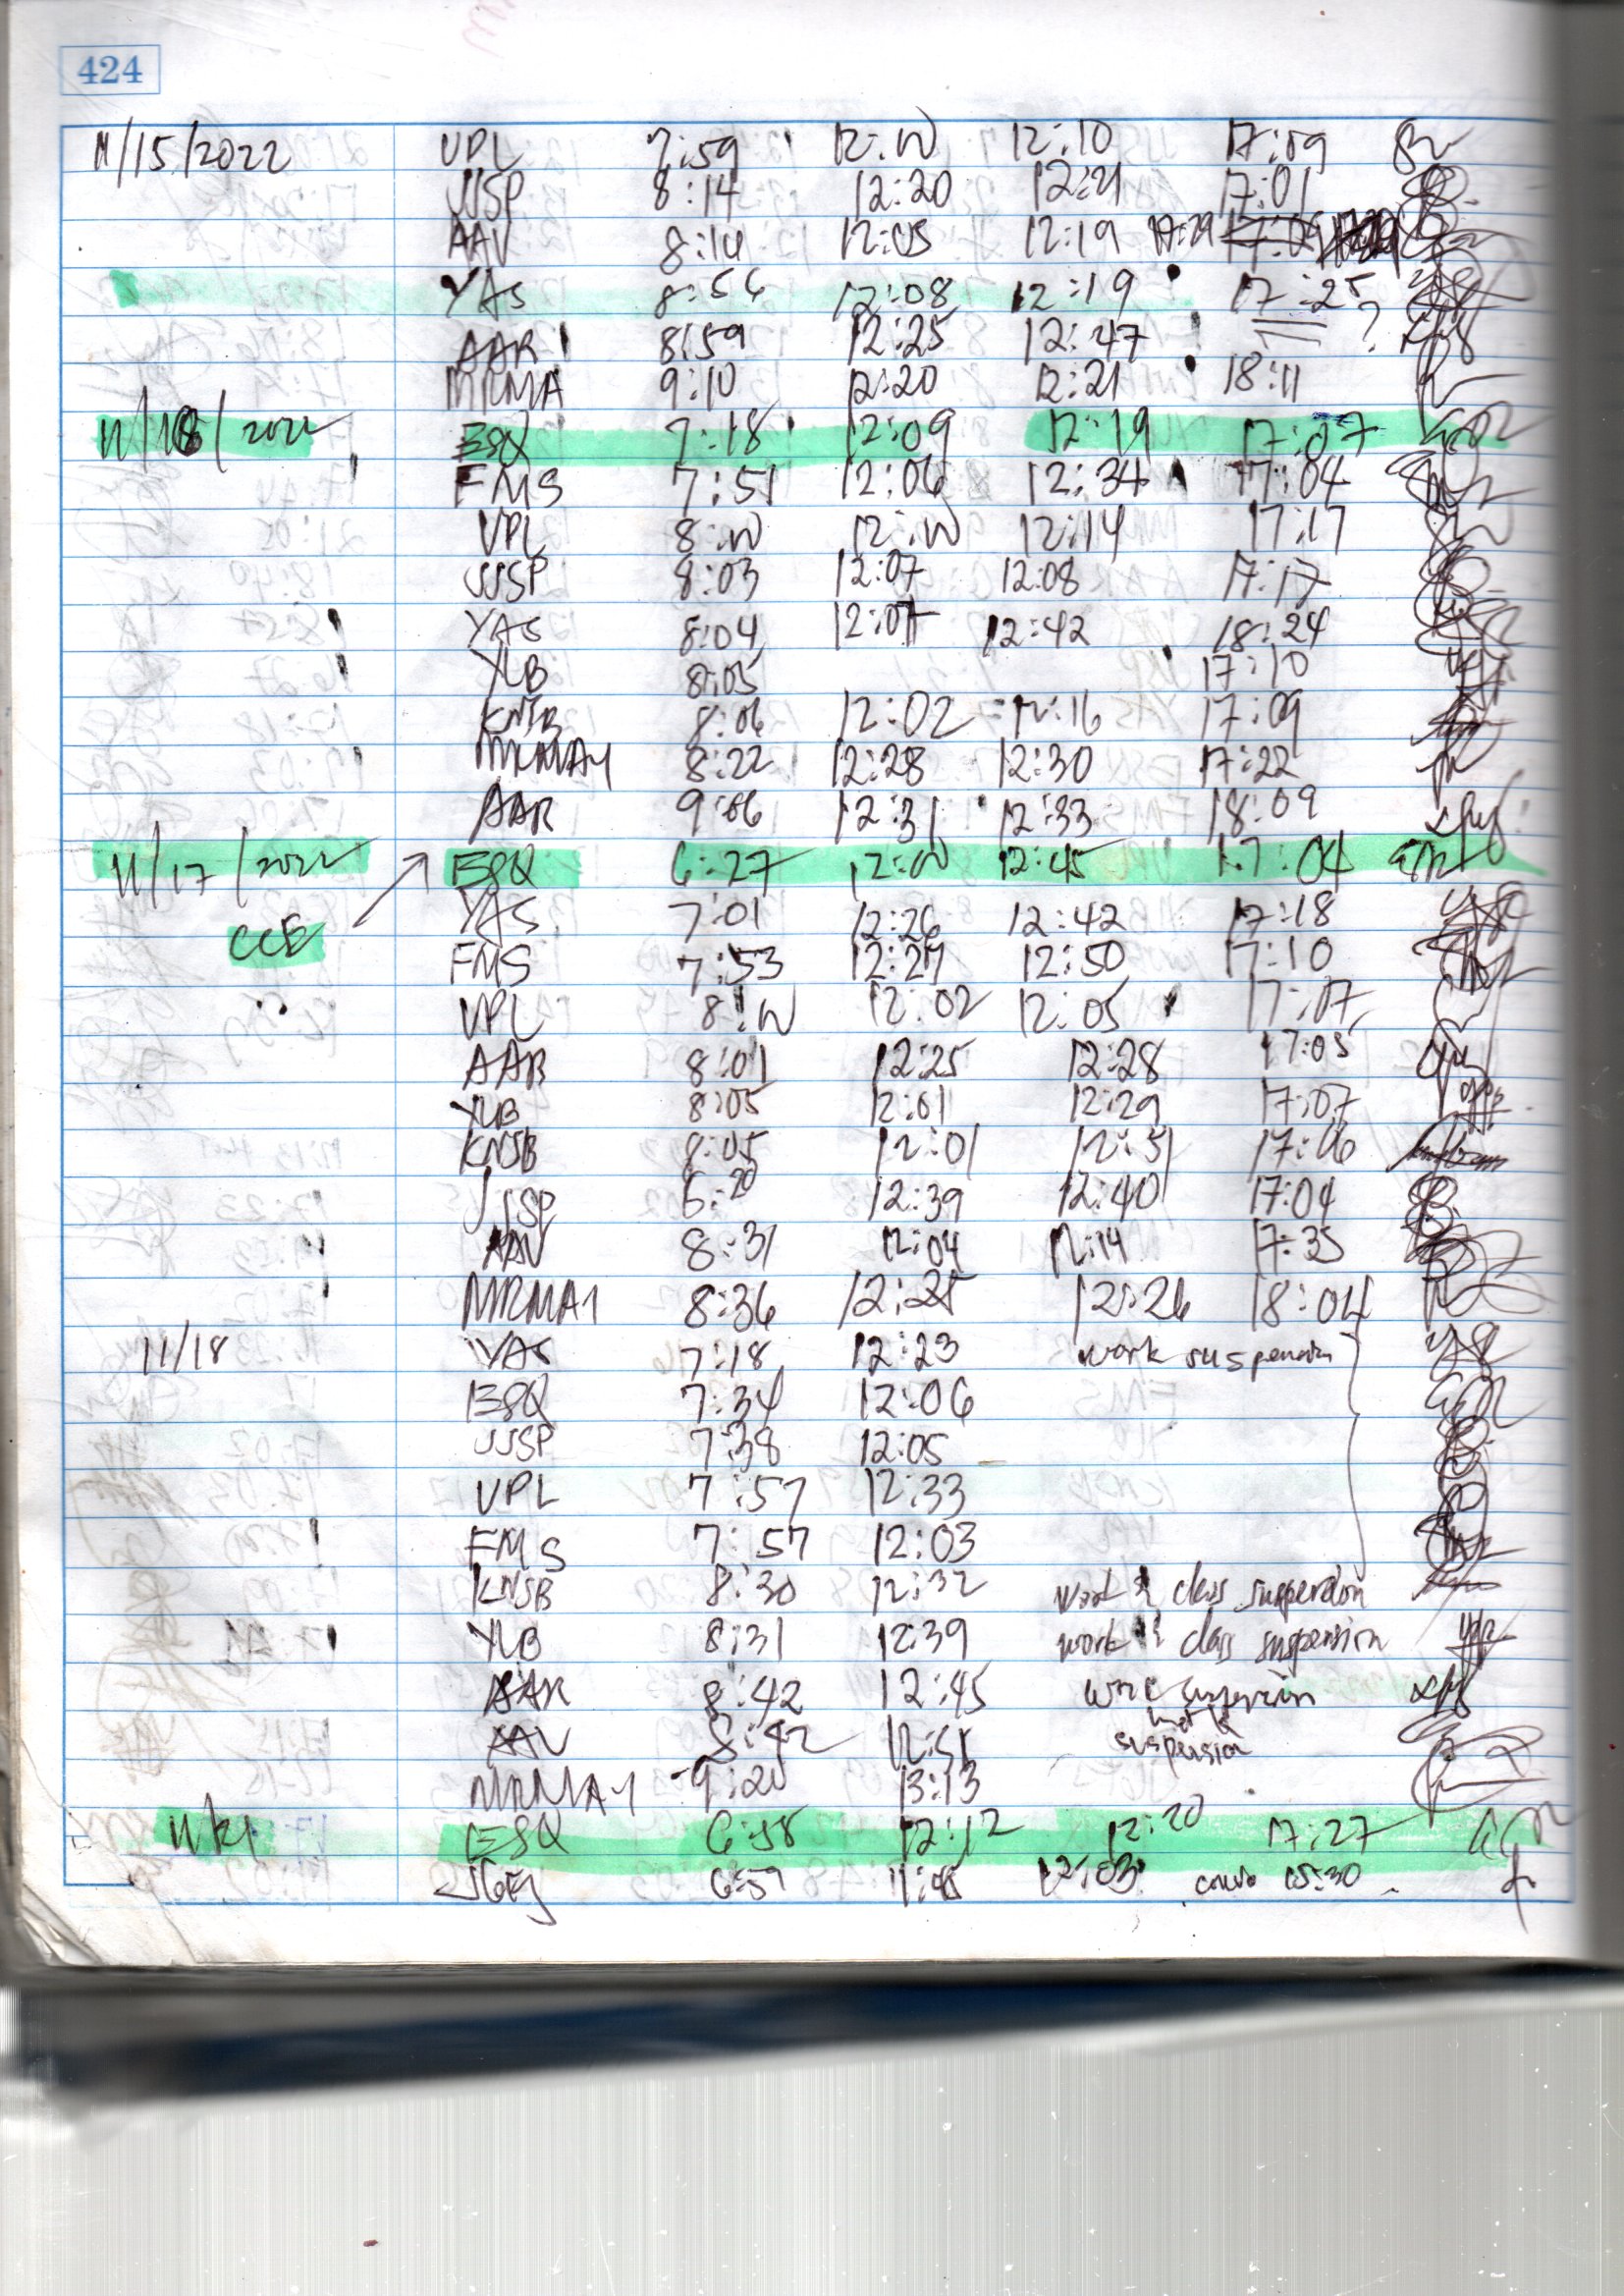 424
11/15/2022 VPL 7:59 12:00 12:10 17:09
JJSP 8:14 12:20 12:21 17:01
AAV 8:14 12:05 12:19 17:29
YAS 8:56 12:08 12:19 17:25
AAR 8:59 12:25 12:47 ?
MRMA 9:10 12:20 12:21 18:11
11/16/2022 ESQ 7:18 12:09 12:19 17:07
FMS 7:51 12:06 12:34 17:04
VPL 8:00 12:00 12:14 17:17
JJSP 8:03 12:07 12:08 17:17
YAS 8:04 12:07 12:42 18:24
YLB 8:05 17:10
KNSB 8:06 12:02 12:16 17:09
MRMAY 8:22 12:28 12:30 17:22
AAR 9:06 12:31 12:33 18:09
11/17/2022 ESQ 6:27 12:00 12:45 17:04
YAS 7:01 12:26 12:42 17:18
CCE
FMS 7:53 12:27 12:50 17:10
VPL 8:00 12:02 12:05 17:07
AAR 8:01 12:25 12:28 17:05
YLB 8:05 12:01 12:29 17:07
KNSB 8:05 12:01 12:31 17:06
JJSP 8:20 12:39 12:40 17:04
AAV 8:31 12:04 12:14 17:35
MRMAY 8:36 12:25 12:26 18:04
11/18 YAS 7:18 12:23 work suspension
ESQ 7:34 12:06
JJSP 7:38 12:05
VPL 7:57 12:33
FMS 7:57 12:03
KNSB 8:30 12:32 work & class suspension
YLB 8:31 12:39 work & class suspension
AAR 8:42 12:45 work suspension
AAV 8:42 12:51 suspension
MRMAY 9:20 13:13
11/21 ESQ 6:58 12:12 12:20 17:27
6:59 11:48 12:03 15:30